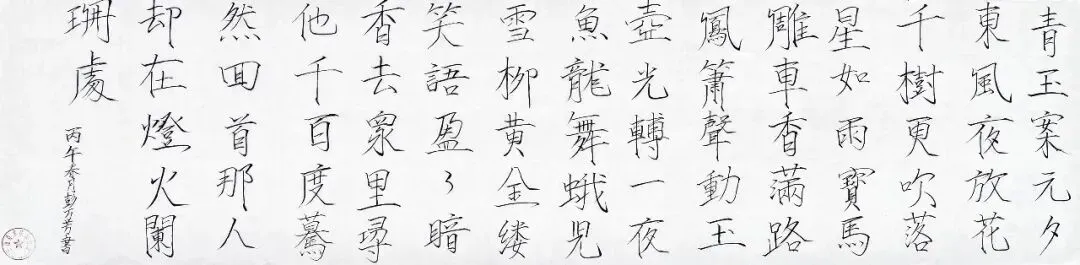 青玉案元夕
東風夜放花
千樹更吹落
星如雨寶馬
雕車香滿路
鳳簫聲動玉
壺光轉一夜
魚龍舞蛾児
雪柳黄金缕
笑語盈〻暗
香去衆里尋
他千百度驀
然回首那人
却在燈火闌
珊處
丙午春月彭万芳書